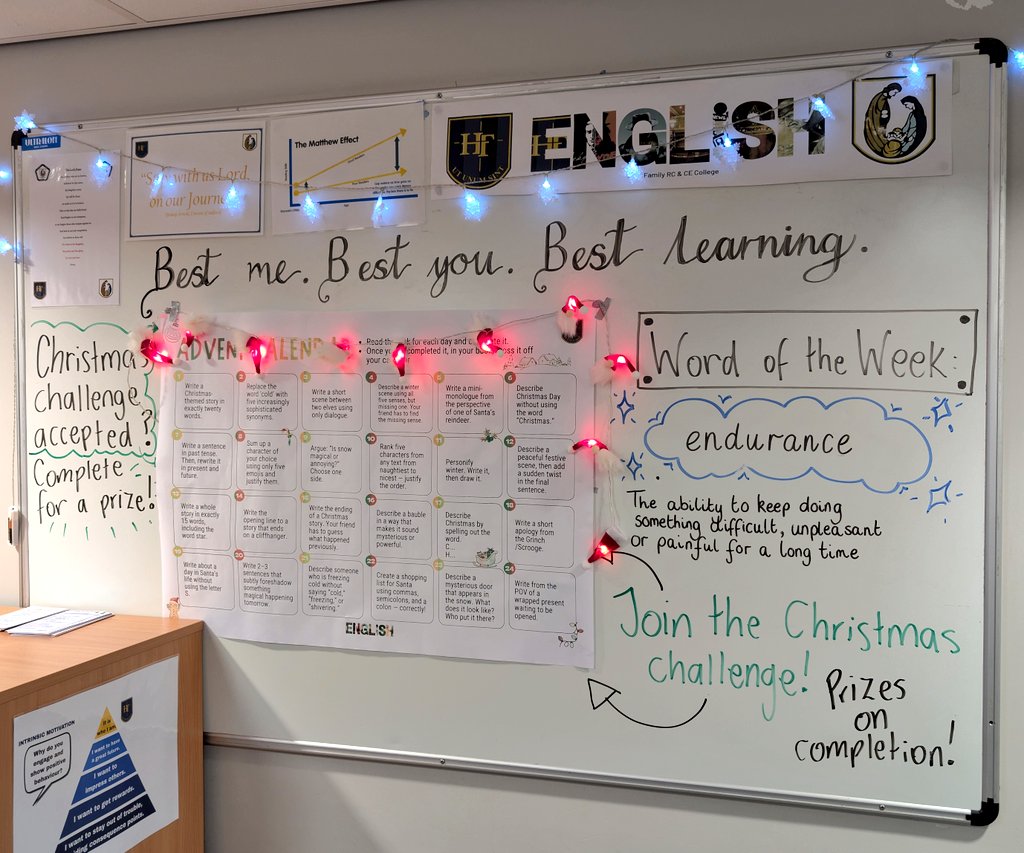 ULTRALOFT
"Stay with us Lord,
on our Journey"
The Matthew Effect
Hf
UT UNUM SINT
ENGLISH
Family RC & CE College
Best me. Best you. Best learning.
Christmas
challenge
accepted?
Complete
for a prize!
ADVENT CALENDAR
1
Write a
Christmas-
themed story in
exactly twenty
words.
2
Replace the
word 'cold' with
five increasingly
sophisticated
synonyms.
3
Write a short
scene between
two elves using
only dialogue.
4
Describe a winter
scene using all
five senses, but
missing one. Your
friend has to find
the missing sense.
5
Write a mini-
monologue from
the perspective
of one of Santa's
reindeer.
6
Describe
Christmas Day
without using
the word
"Christmas."
7
Write a sentence
in past tense.
Then, rewrite it in
present and
future.
8
Sum up a
character of
your choice
using only five
emojis and
justify them.
9
Argue: "Is snow
magical or
annoying?"
Choose one
side.
10
Rank five
characters from
any text from
naughtiest to
nicest – justify
the order.
11
Personify
winter. Write it,
then draw it.
12
Describe a
peaceful festive
scene, then add
a sudden twist
in the final
sentence.
13
Write a whole
story in exactly
15 words,
including the
word star.
14
Write the
opening line to a
story that ends
on a cliffhanger.
15
Write the ending
of a Christmas
story. Your friend
has to guess
what happened
previously.
16
Describe a bauble
in a way that
makes it sound
mysterious or
powerful.
17
Describe
Christmas by
spelling out the
word.
C...
H...
18
Write a short
apology from
the Grinch
/Scrooge.
19
Write about a
day in Santa's
life without
using the letter
S.
20
Write 2-3
sentences that
subtly foreshadow
something
magical happening
tomorrow.
21
Describe someone
who is freezing
cold without
saying "cold,"
"freezing," or
"shivering."
22
Create a shopping
list for Santa
using commas,
semicolons, and a
colon – correctly!
23
Describe a
mysterious door
that appears in
the snow. What
does it look like?
Who put it there?
24
Write from the
POV of a
wrapped present
waiting to be
opened.
ENGLISH
Word of the Week:
endurance
The ability to keep doing
something difficult, unpleasant
or painful for a long time
Join the Christmas
challenge!
Prizes
on
completion!
INTRINSIC MOTIVATION
Why do you
engage and
show positive
behaviour?
It is
who I am
I want to have
a great future.
I want to
impress others.
I want to get rewards.
I want to stay out of trouble,
consequence points.